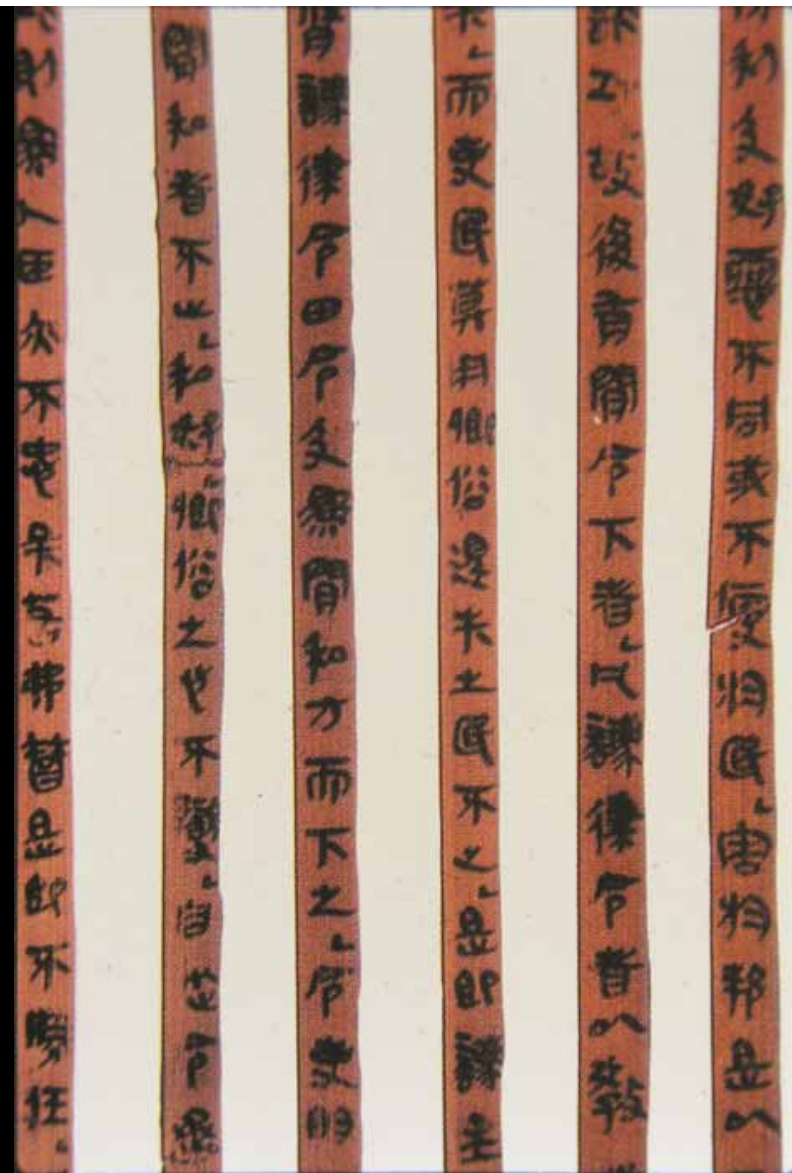 所利及好惡不同或不便於民害於邦是以
詐巧故後有閒令下者凡灋律令者以教
矣而吏民莫用鄉俗淫失之民不止是即灋主
脩灋律令田令及為閒私方而下之令吏明
閒私者不止私好鄉俗之心不變自從令丞
則為人臣亦不忠矣若弗智是即不勝任